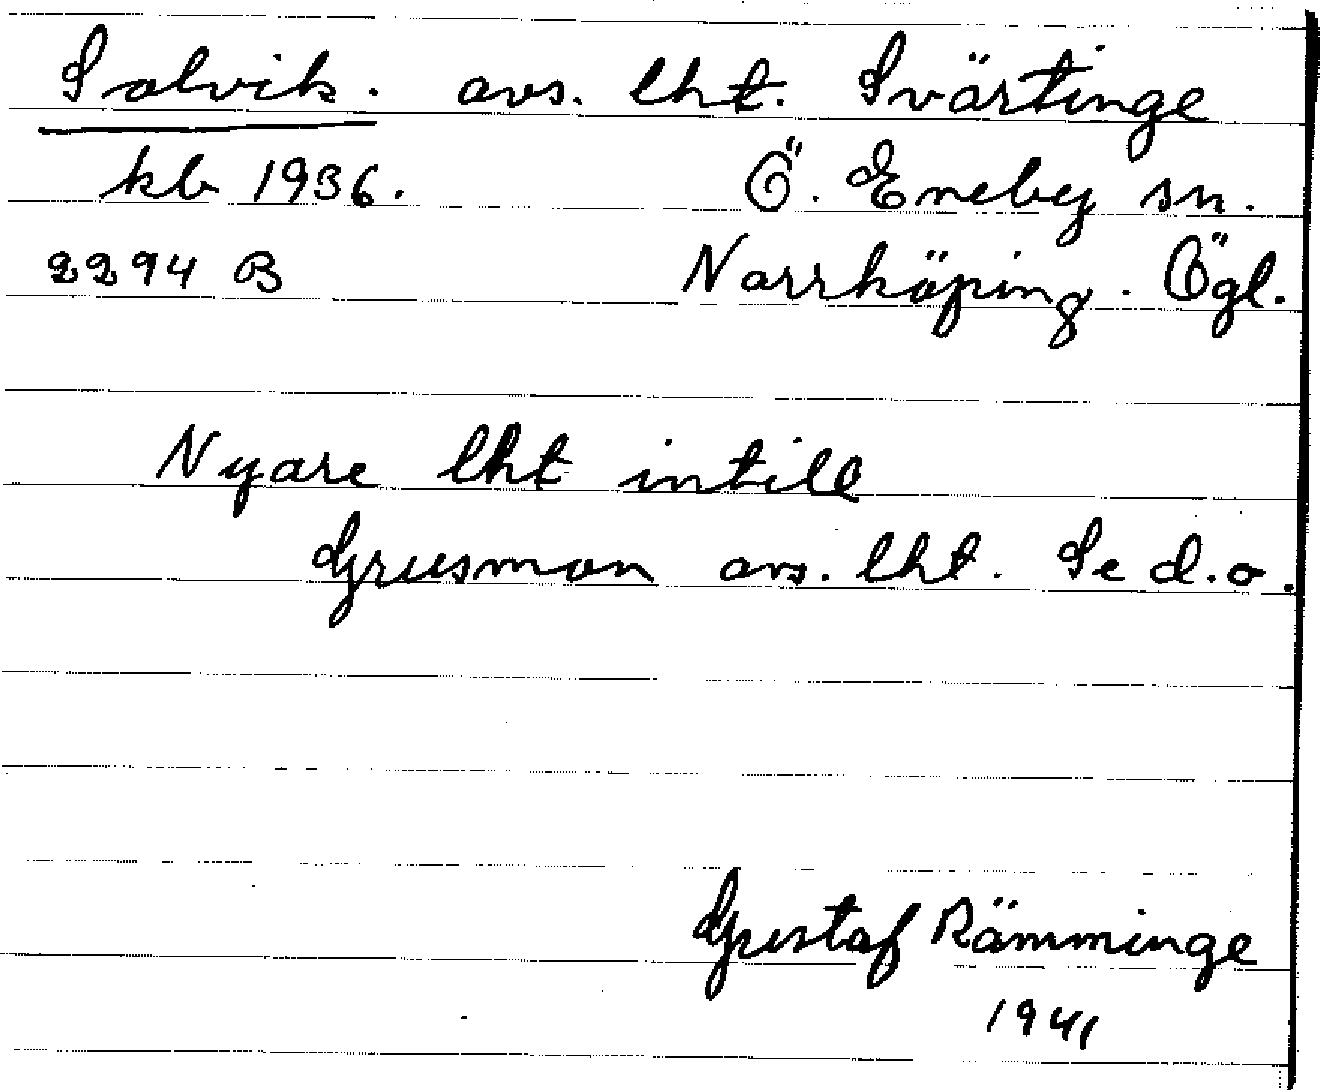 Solvik. avs. lht. Svärtinge
kb 1936. Ö. Eneby sn.
2294 B Norrköping. Ögl.
Nyare lht intill
Grusmon avs. lht. Se d.o.
Gustaf Rämminge
1941